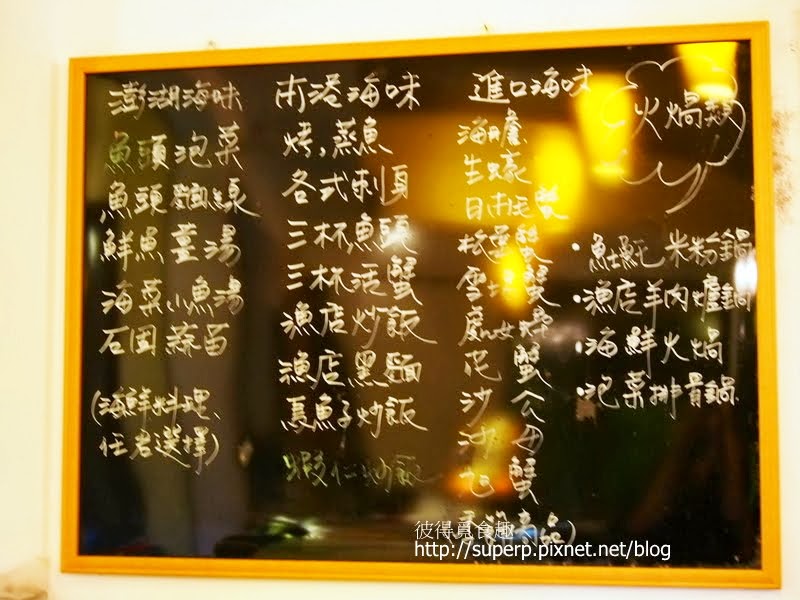 澎湖海味
魚頭泡菜
魚頭麵線
鮮魚薑湯
海菜小魚湯
石固蒜苗
(海鮮料理、
任君選擇)
南港海味
烤,蒸魚
各式刺身
三杯魚頭
三杯活蟹
漁店炒飯
漁店黑麵
烏魚子炒飯
蝦仁炒飯
進口海味
海膽
生蠔
日本毛蟹
松葉蟹
雪場蟹
處女蟳
花蟹
沙公
沙母
旭蟹
火鍋類
·魚土魠米粉鍋
·漁店羊肉爐鍋
·海鮮火鍋
·泡菜排骨鍋
彼得覓食趣
http://superp.pixnet.net/blog